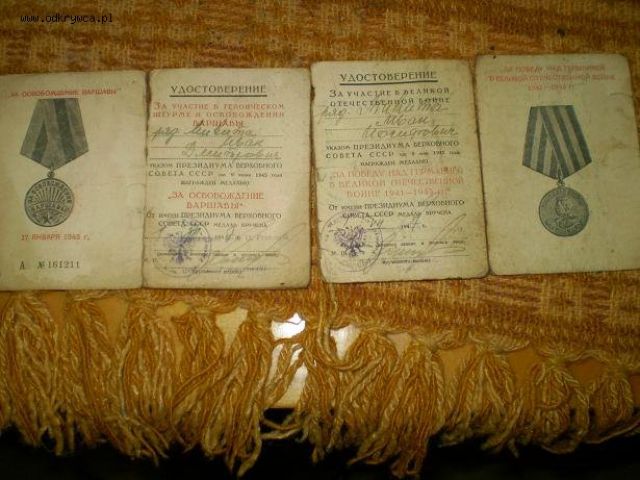 www.odkrywca.pl
„ЗА ОСВОБОЖДЕНИЕ ВАРШАВЫ“
17 ЯНВАРЯ 1945 г.
А № 161211
УДОСТОВЕРЕНИЕ
ЗА УЧАСТИЕ В ГЕРОИЧЕСКОМ
ШТУРМЕ И ОСВОБОЖДЕНИИ
ВАРШАВЫ
ряд.
Иван
УКАЗОМ ПРЕЗИДИУМА ВЕРХОВНОГО
СОВЕТА СССР от 9 июня 1945 года
НАГРАЖДЕН МЕДАЛЬЮ
„ЗА ОСВОБОЖДЕНИЕ
ВАРШАВЫ“
От ИМЕНИ ПРЕЗИДИУМА ВЕРХОВНОГО
СОВЕТА СССР МЕДАЛЬ ВРУЧЕНА
УДОСТОВЕРЕНИЕ
ЗА УЧАСТИЕ В ВЕЛИКОЙ
ОТЕЧЕСТВЕННОЙ ВОЙНЕ
ряд.
Иван
УКАЗОМ ПРЕЗИДИУМА ВЕРХОВНОГО
СОВЕТА СССР от 9 мая 1945 года
НАГРАЖДЕН МЕДАЛЬЮ
„ЗА ПОБЕДУ НАД ГЕРМАНИЕЙ
В ВЕЛИКОЙ ОТЕЧЕСТВЕННОЙ
ВОЙНЕ 1941—1945 гг.“
От ИМЕНИ ПРЕЗИДИУМА ВЕРХОВНОГО
СОВЕТА СССР МЕДАЛЬ ВРУЧЕНА
„ЗА ПОБЕДУ НАД ГЕРМАНИЕЙ
В ВЕЛИКОЙ ОТЕЧЕСТВЕННОЙ ВОЙНЕ
1941—1945 гг.“